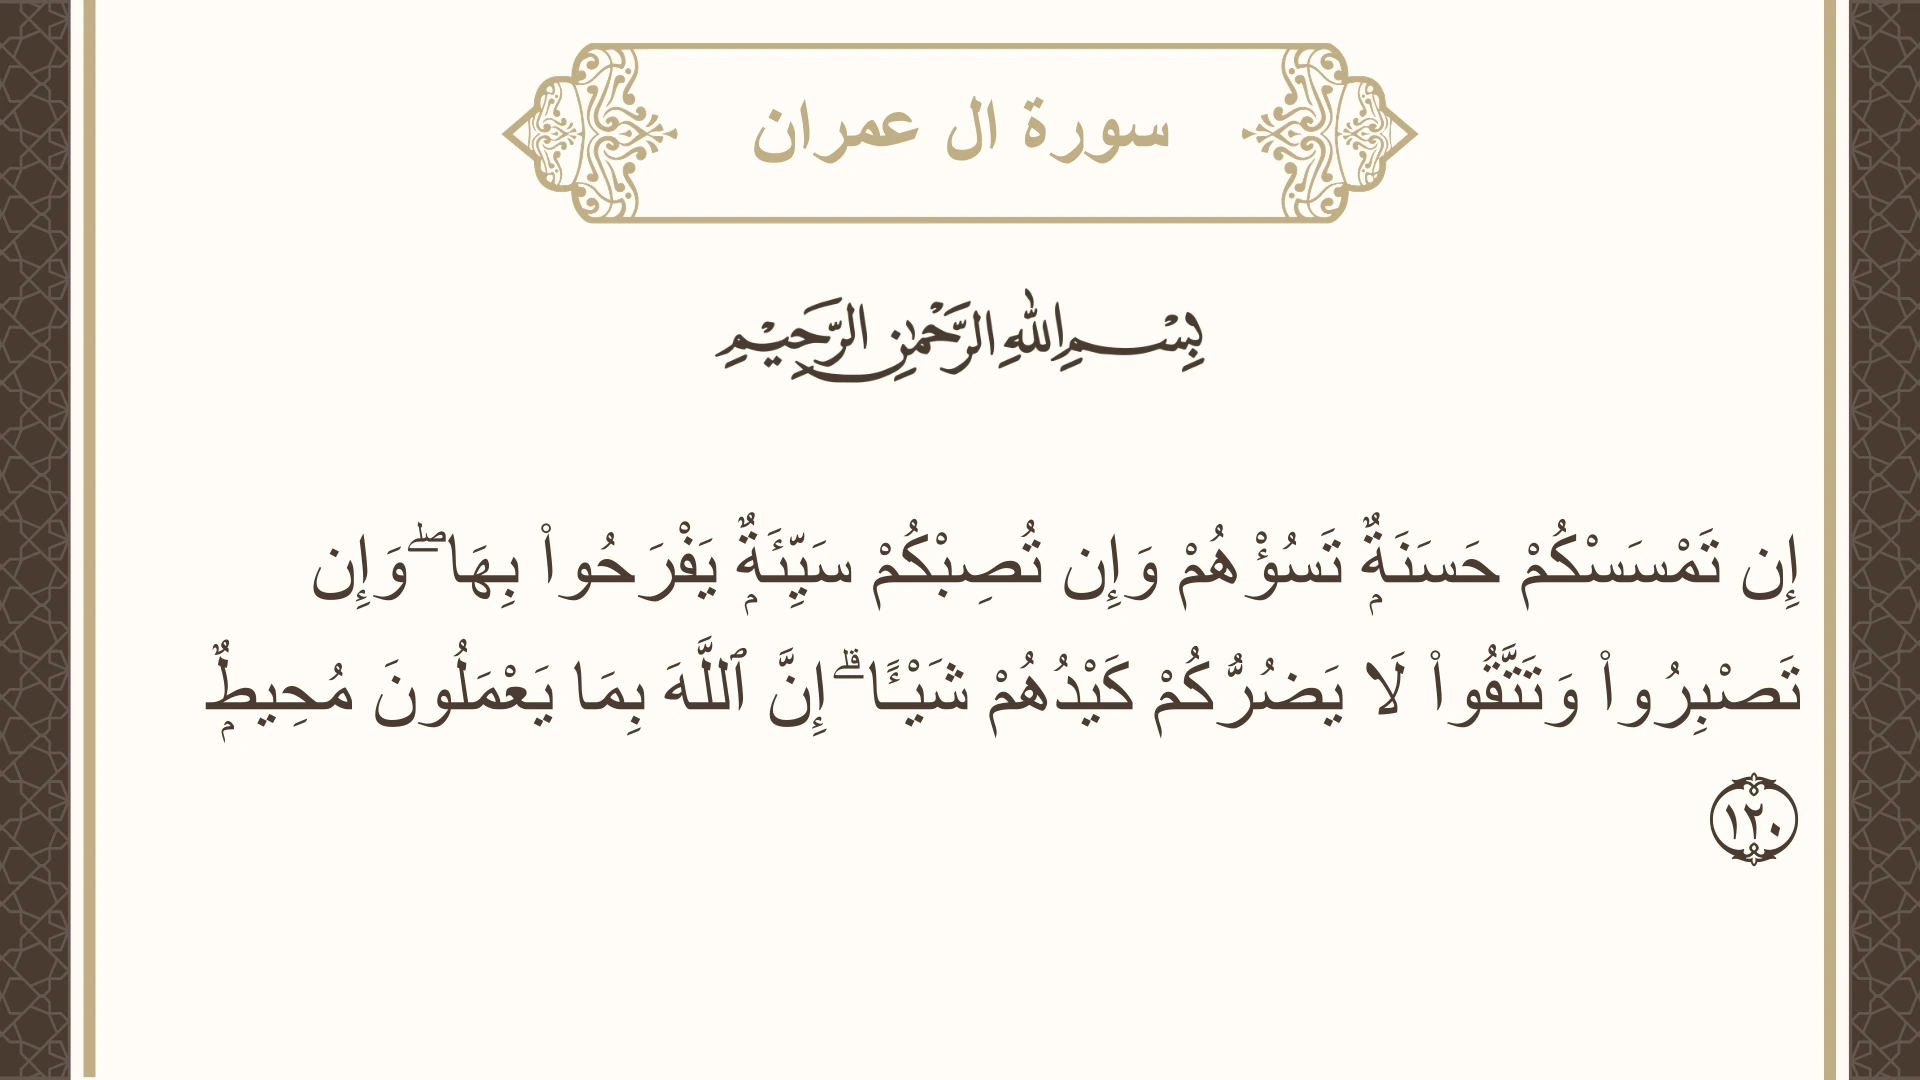 سورة ال عمران
بِسْمِ اللهِ الرَّحْمٰنِ الرَّحِيْمِ
إِن تَمْسَسْكُمْ حَسَنَةٌۭ تَسُؤْهُمْ وَإِن تُصِبْكُمْ سَيِّئَةٌۭ يَفْرَحُوا۟ بِهَا ۖ وَإِن
تَصْبِرُوا۟ وَتَتَّقُوا۟ لَا يَضُرُّكُمْ كَيْدُهُمْ شَيْـًٔا ۗ إِنَّ ٱللَّهَ بِمَا يَعْمَلُونَ مُحِيطٌۭ
١٢٠